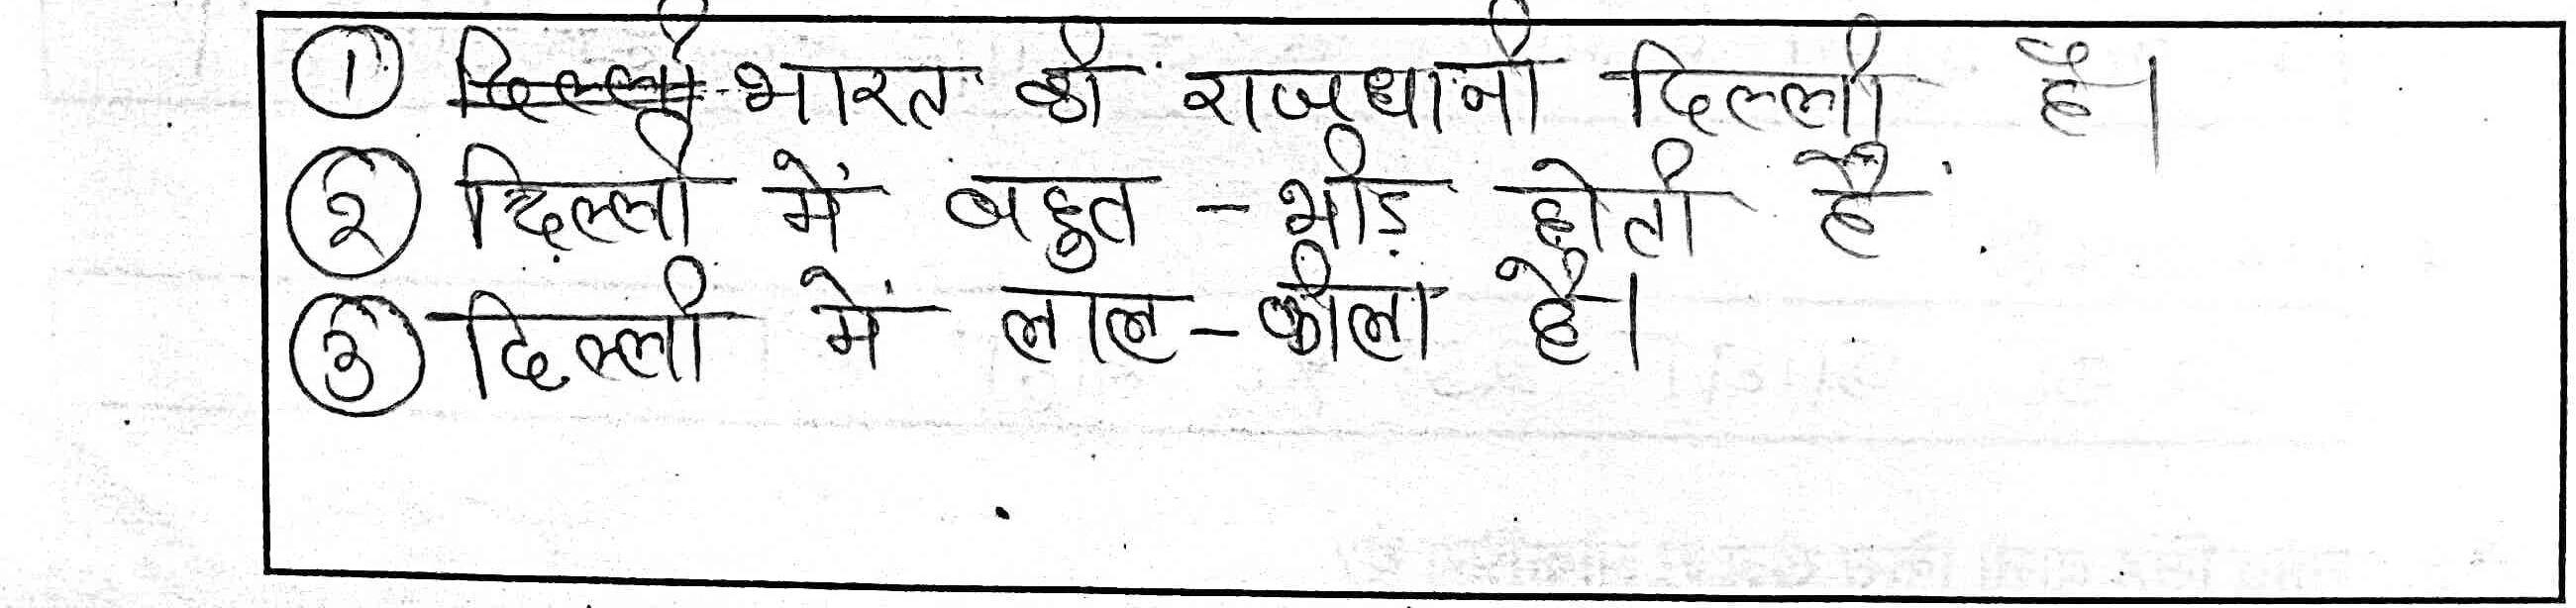 ① भारत की राजधानी दिल्ली है।
② दिल्ली में बहुत - भीड़ होती है
③ दिल्ली में लाल - कीला है।